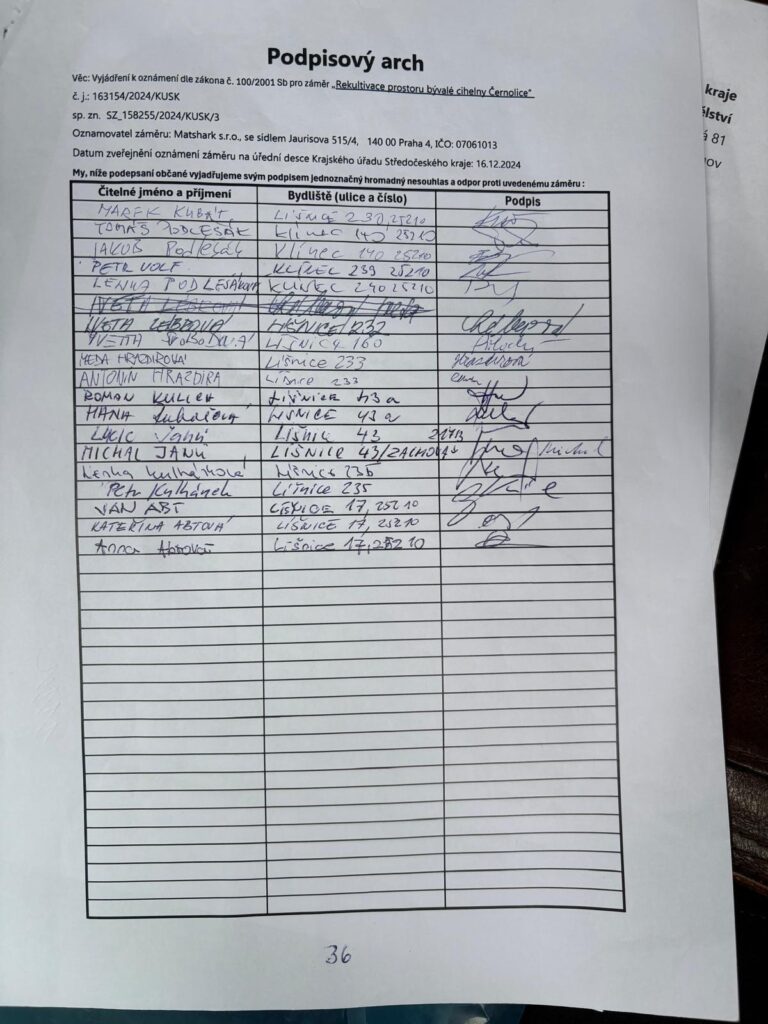 Podpisový arch
Věc: Vyjádření k oznámení dle zákona č. 100/2001 Sb pro záměr „Rekultivace prostoru bývalé cihelny Černolice"
č. j.: 163154/2024/KUSK
sp. zn. SZ_158255/2024/KUSK/3
Oznamovatel záměru: Matshark s.r.o., se sídlem Jaurisova 515/4, 140 00 Praha 4, IČO: 07061013
Datum zveřejnění oznámení záměru na úřední desce Krajského úřadu Středočeského kraje: 16.12.2024
My, níže podepsaní občané vyjadřujeme svým podpisem jednoznačný hromadný nesouhlas a odpor proti uvedenému záměru :
Čitelné jméno a příjmení Bydliště (ulice a číslo) Podpis
MAREK KUBÁT LIŠNICE 25210
TOMÁŠ PODLESÁK Klínec 140 25210
JAKUB Podlesák Klínec 140 25210
PETR VOLF KLÍNEC 239 25210
LENKA PODLESÁKOVÁ KLÍNEC 240 25210
IVETA
IVETA LIŠNICE 232
YVETTA SVOBODOVÁ LIŠNICE 160
HRAZDIROVÁ Lišnice 233
ANTONÍN HRAZDIRA Lišnice 233
ROMAN KULICH Lišnice 43a
HANA LIŠNICE 43a
Lišnice 43
MICHAL JANŮ LIŠNICE 43
Lenka Kulhánková Lišnice 235
Petr Kulhánek Lišnice 235
ABT LIŠNICE 17, 25210
KATEŘINA ABTOVÁ LIŠNICE 17, 25210
Anna Abtová Lišnice 17, 25210
36
kraje
81